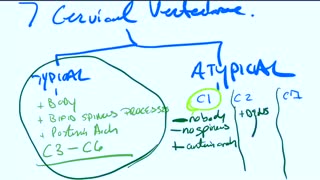 7 Cervical Vertebrae.
TYPICAL
+ Body
+ Bifid spinous processes
+ Posterior Arch
C3 - C6
ATYPICAL
C1
- no body
- no spinous
+ anterior arch
C2
+ DENS
C7